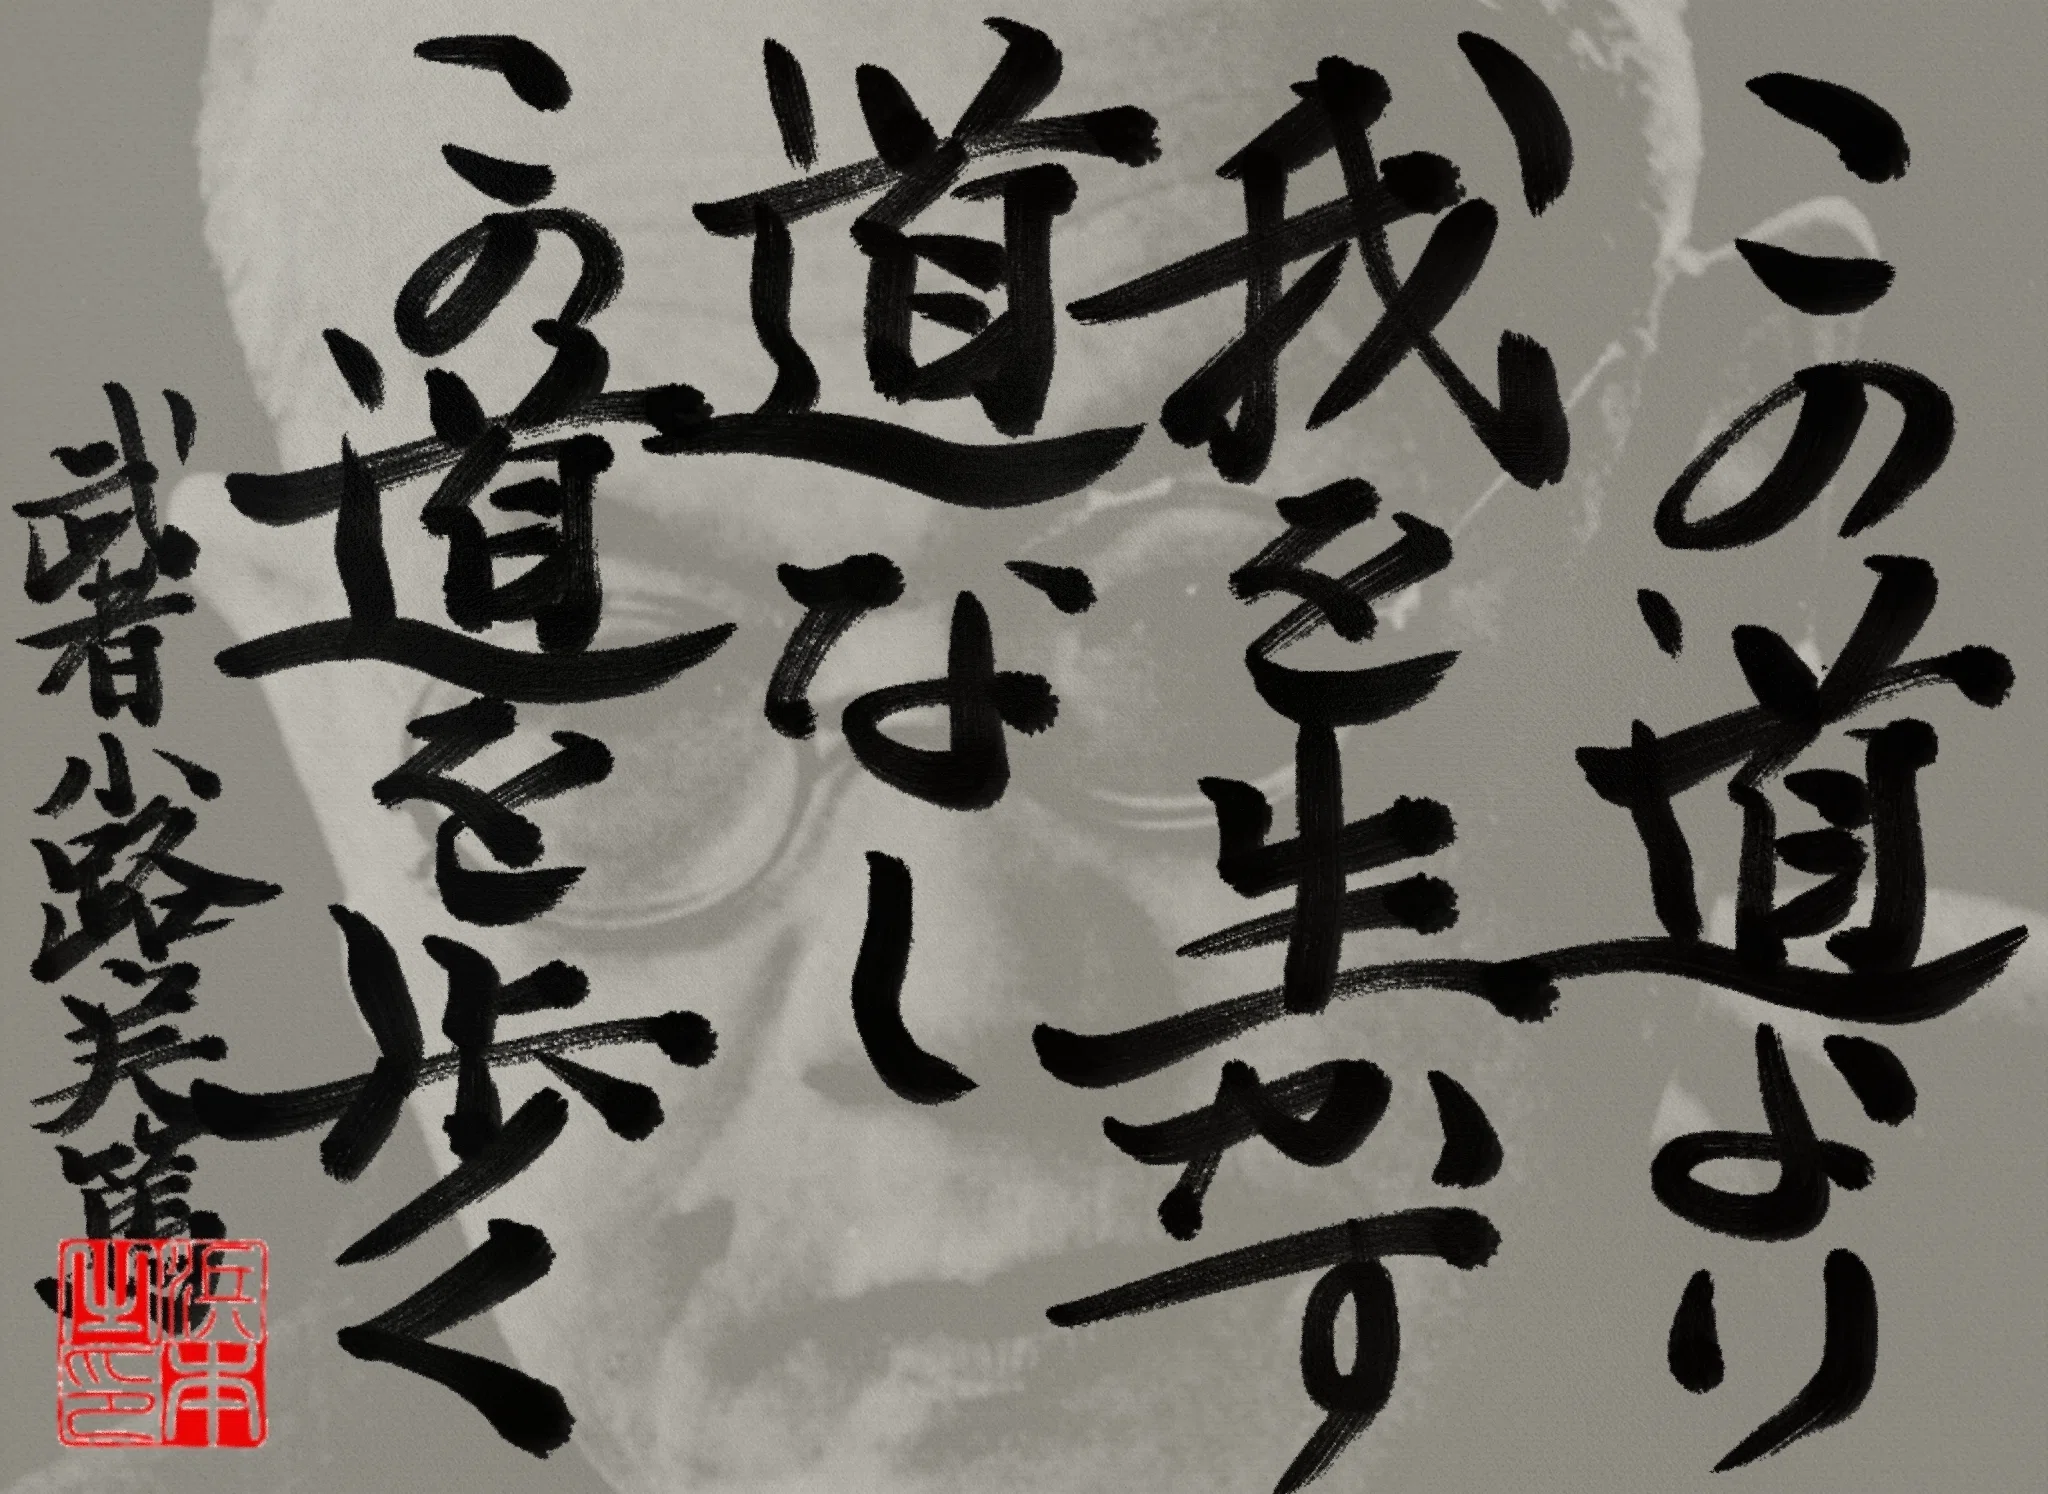 この道より
我を生かす
道なし
この道を歩く
武者小路実篤
浜本之印